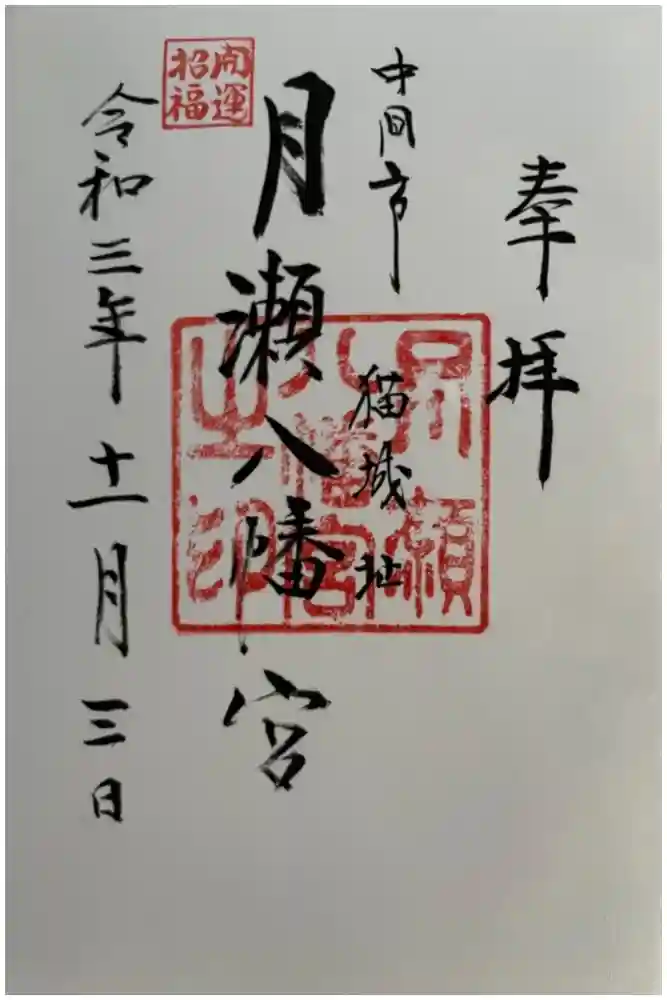 奉拝
中間市
猫城址
月瀬八幡宮
開運
招福
月瀬
八幡宮
之印
令和三年十一月三日